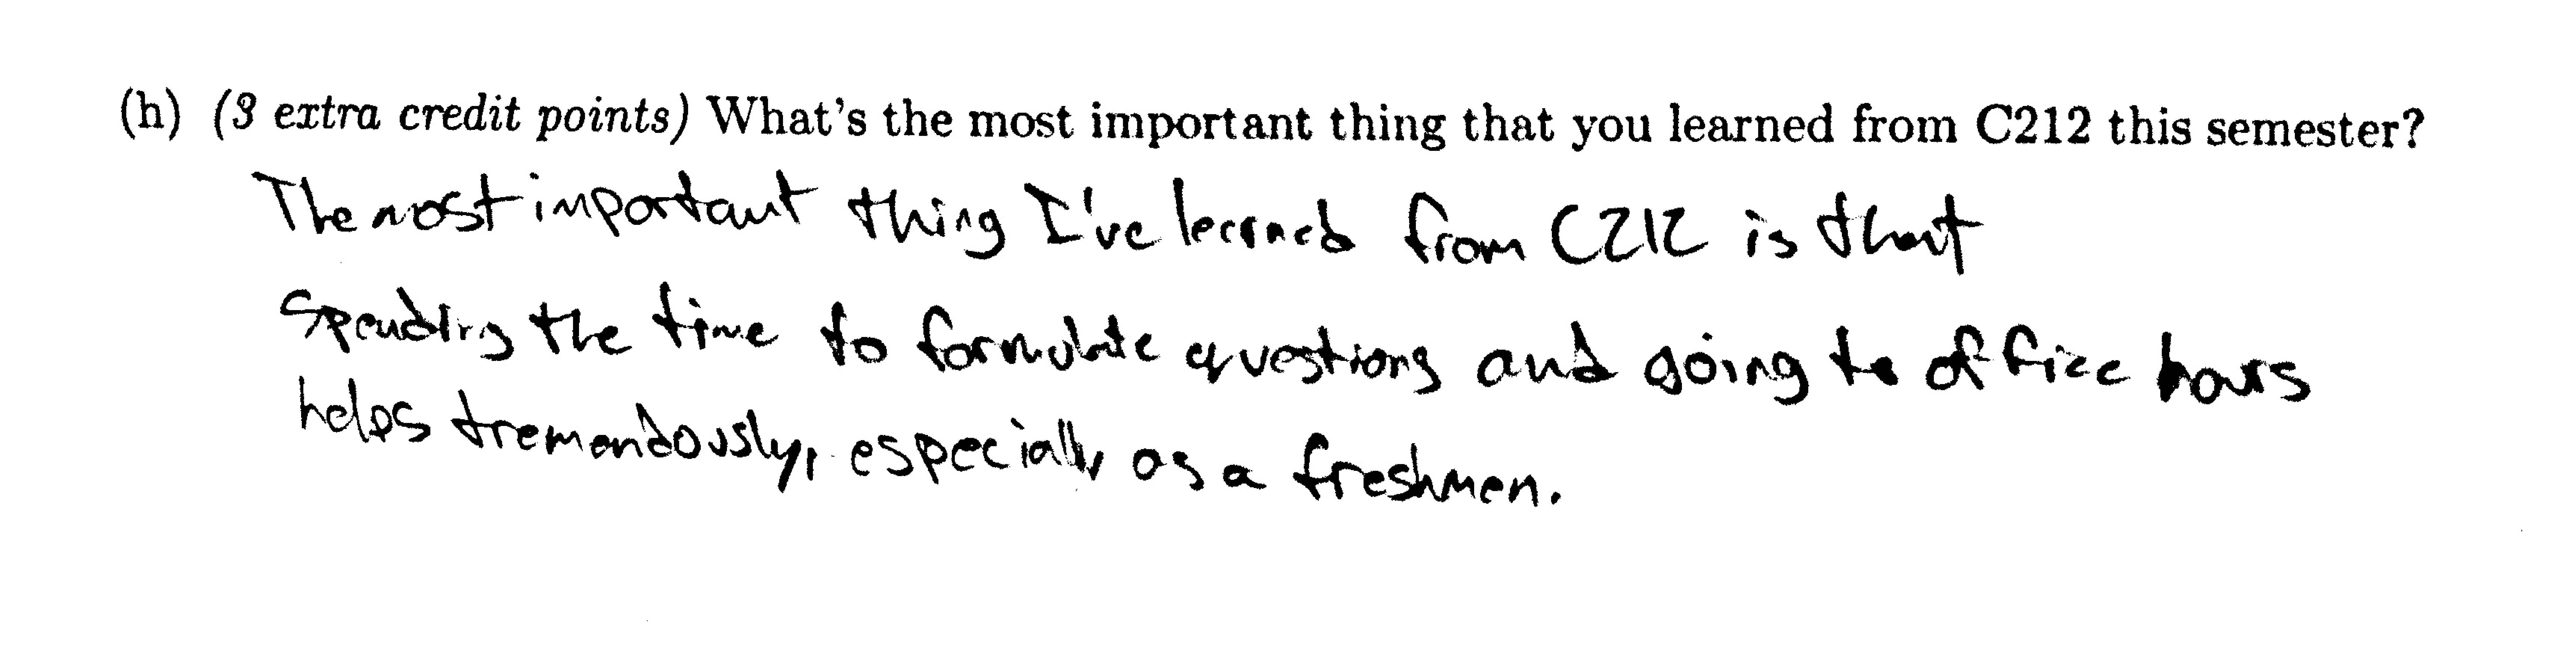 (h) (3 extra credit points) What's the most important thing that you learned from C212 this semester?
The most important thing I've learned from C212 is that
spending the time to formulate questions and going to office hours
helps tremendously, especially as a freshmen.